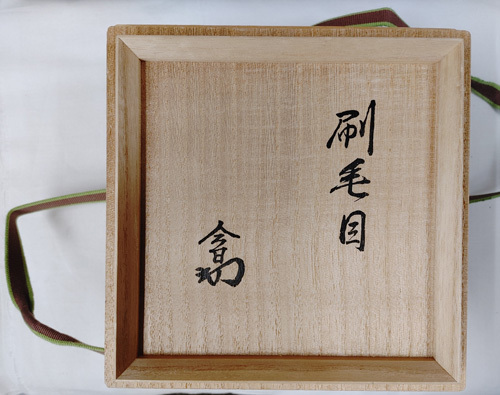 刷毛目